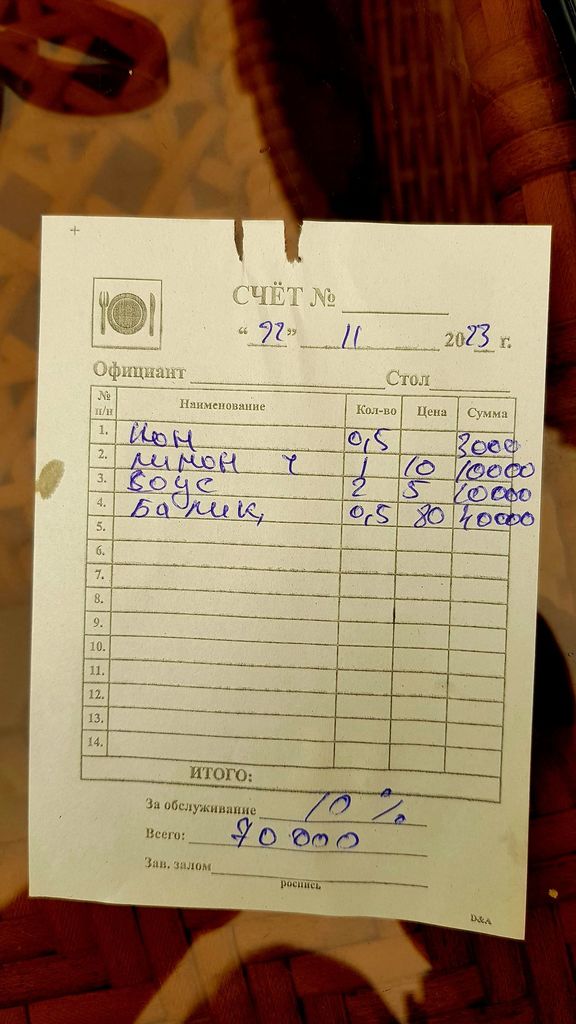 СЧЁТ №
“ 22 ” 11 2023 г.
Официант Стол
№ п/н Наименование Кол-во Цена Сумма
1. Нон 0,5 3000
2. лимон ч 1 10 10000
3. Соус 2 5 10000
4. Балик, 0,5 80 40000
5.
6.
7.
8.
9.
10.
11.
12.
13.
14.
ИТОГО:
За обслуживание 10 %
Всего: 70 000
Зав. залом
роспись
D&A